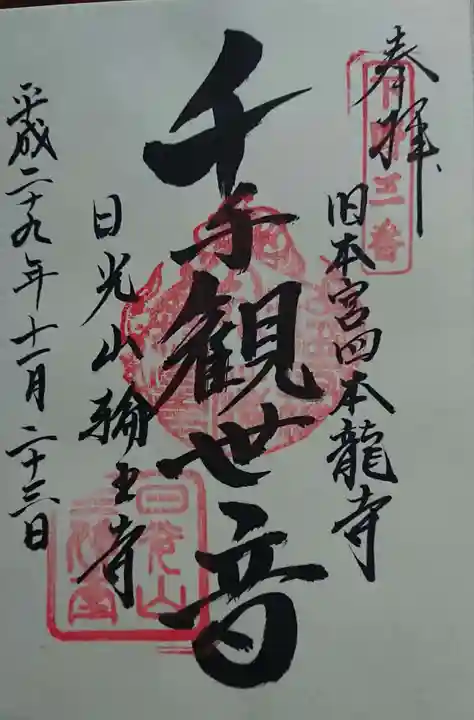 奉拝
下野三番
旧本宮四本龍寺
千手観世音
日光山輪王寺
平成二十九年十一月二十三日
日光山